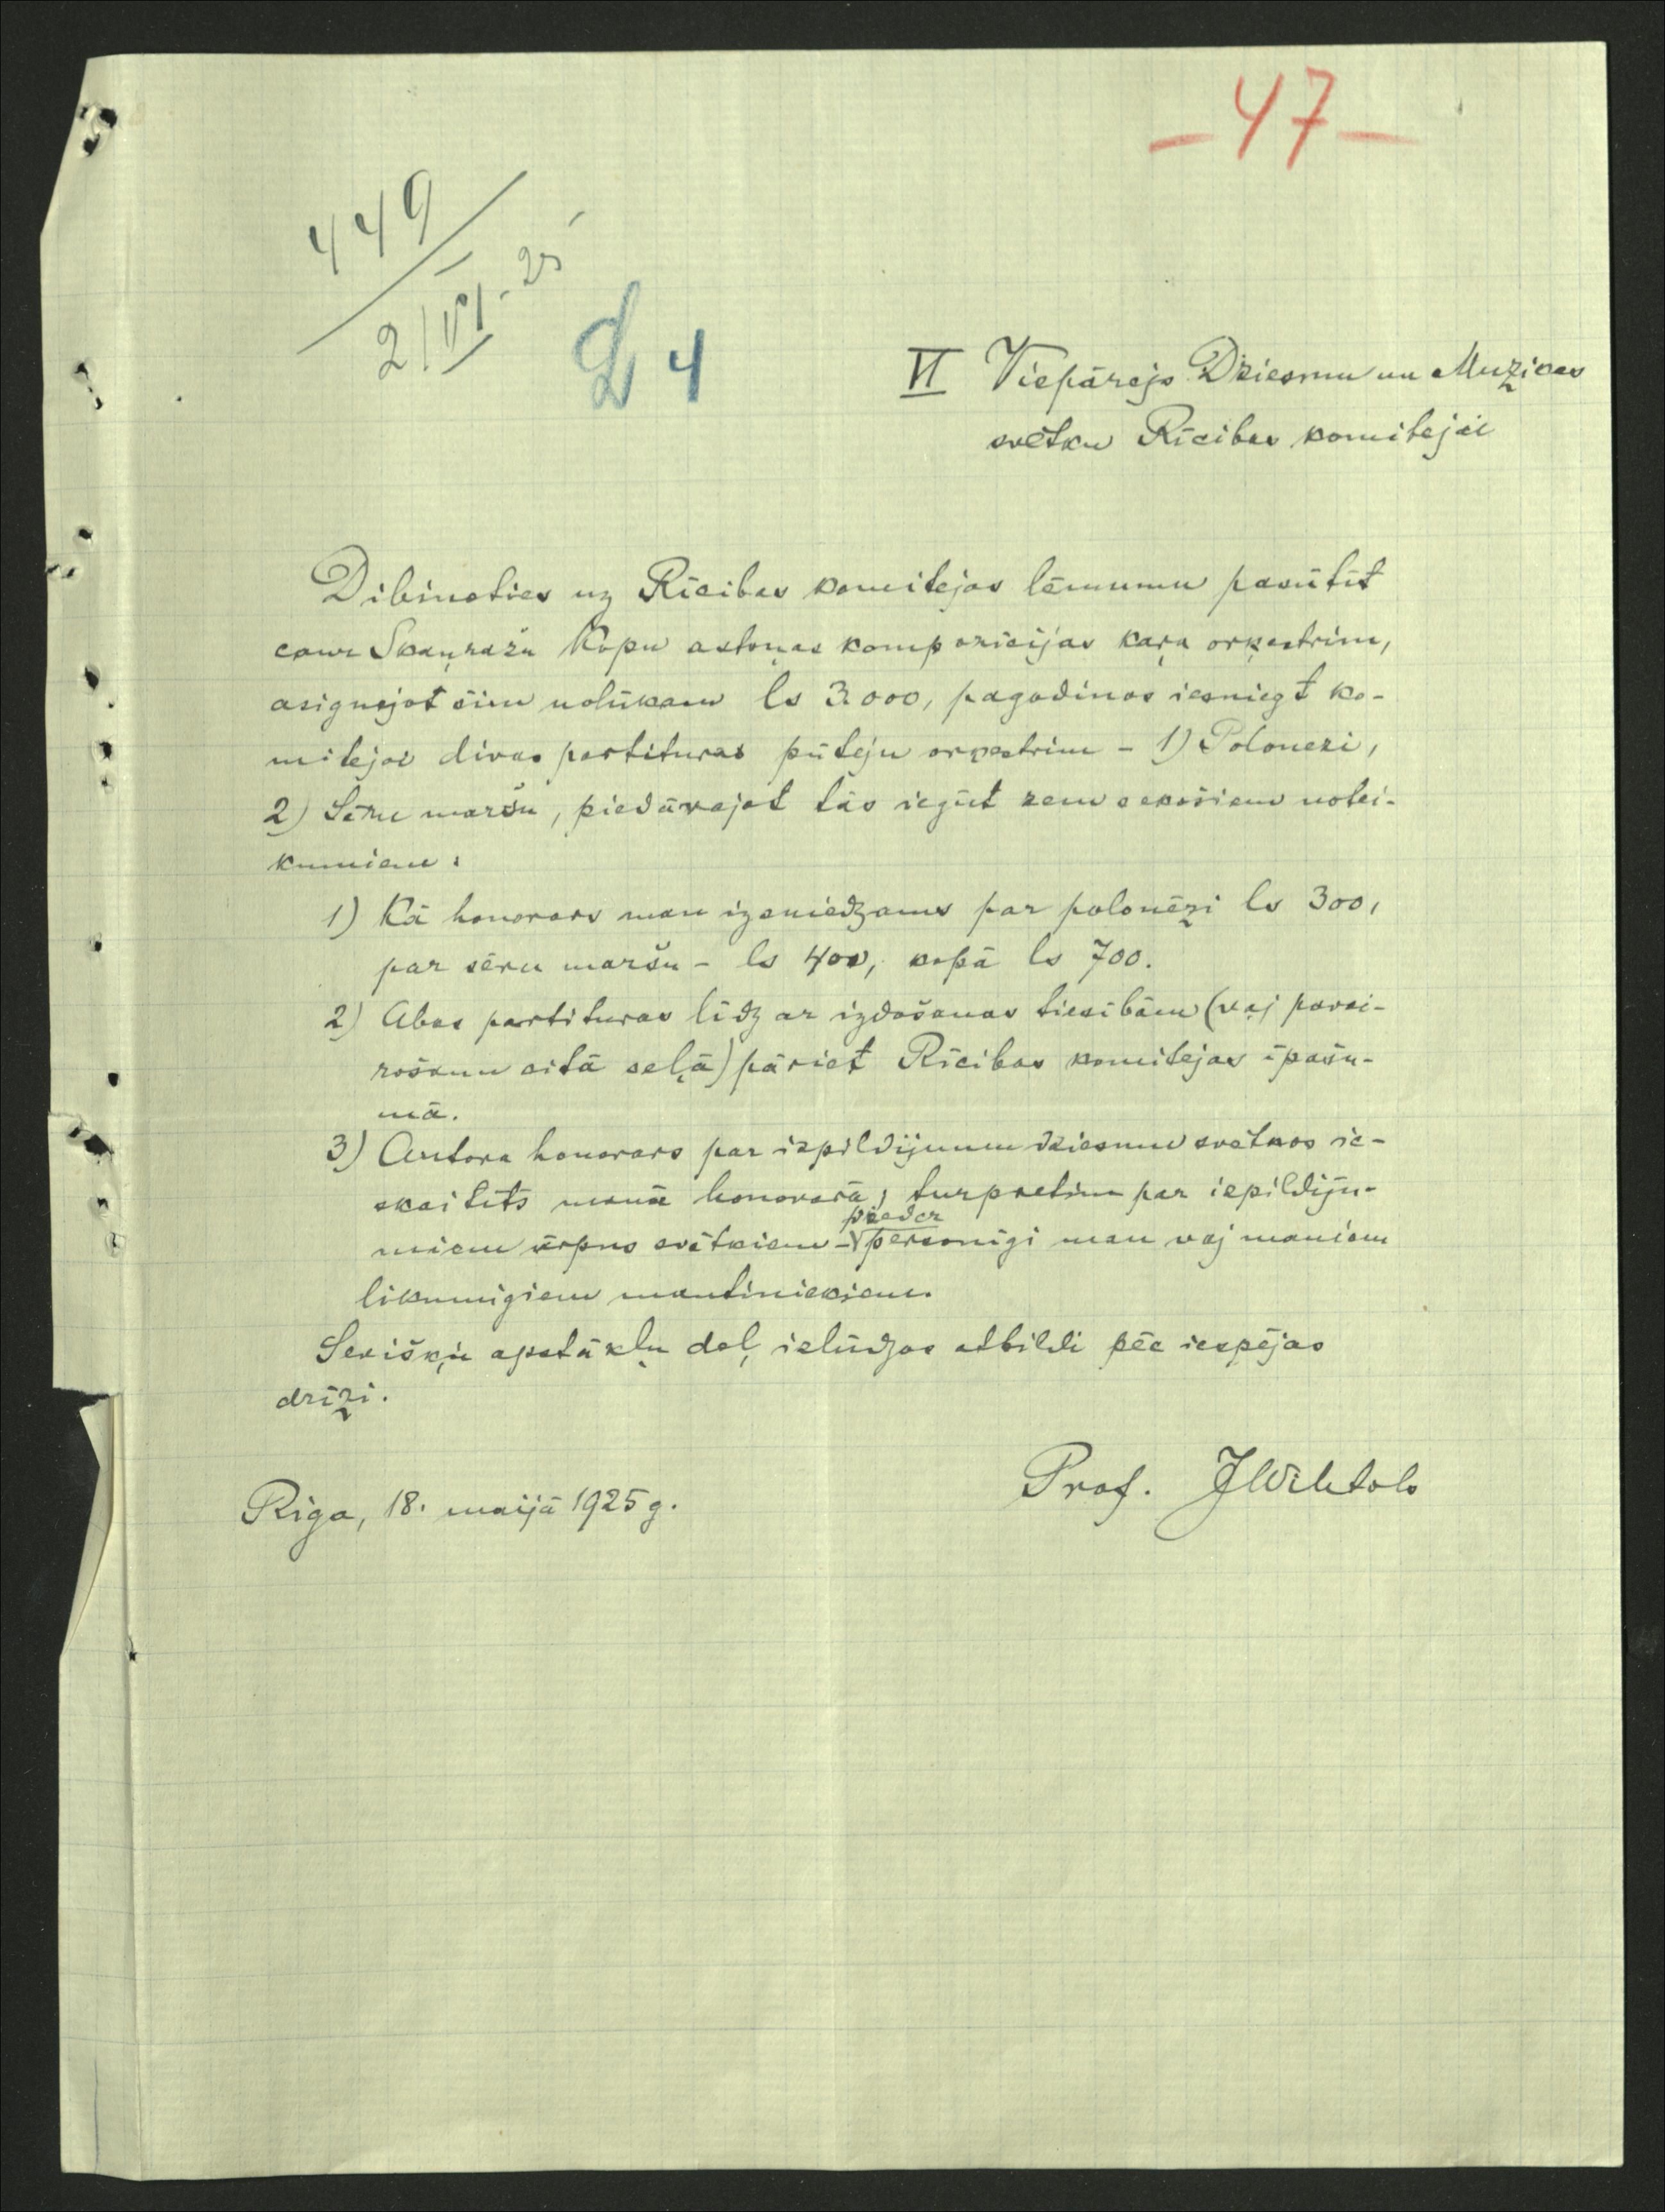 – 47 –
449
2/VI - 25
L 4
VI Vispārejo Dziesmu un Muzikas
svētku Rīcibas komitejai
Dibinoties uz Rīcibas komitejas lēmumu pasūtīt
caur Skaņražu Kopu astoņas kompozicijas kaŗa orķestrim,
asignejot šim nolūkam ls 3.000, pagodinos iesniegt ko-
mitejai divas partituras pūteju orķestrim – 1) Polonezi,
2) Sēru maršu, piedāvajot tās iegūt zem sekošiem notei-
kumiem:
1) Kā honorars man izsniedzams par polonēzi ls 300,
par sēru maršu – ls 400, kopā ls 700.
2) Abas partituras līdz ar izdošanas tiesibām (vaj pavai-
rošanu citā ceļā) pāriet Rīcibas komitejas īpašu-
mā.
3) Autora honorars par izpildijumu dziesmu svētkos ie-
skaitīts manā honorarā, turpretim par izpildiju-
pieder
miem ārpus svētkiem – personīgi man vaj maniem
likumigiem mantiniekiem.
Sevišķu apstākļu deļ ielūdzos atbildi pēc iespējas
drīzi.
Prof. JWihtols
Riga, 18. maijā 1925 g.